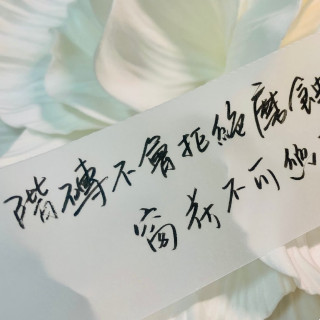 階磚不會拒絕磨蝕
窗花不可幽